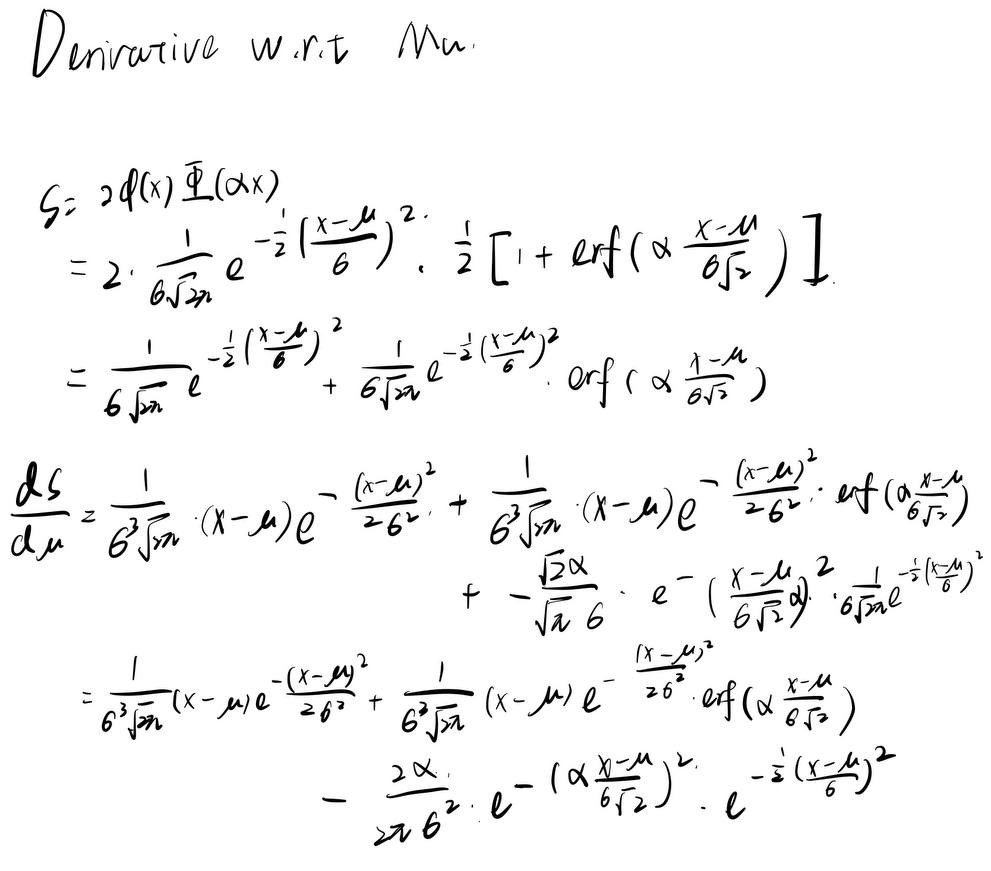 Derivative w.r.t Mu.
S = 2ϕ(x) Φ(αx)
= 2 · \frac{1}{σ\sqrt{2π}} e^{-\frac{1}{2}(\frac{x-μ}{σ})^2} · \frac{1}{2} [1 + erf(α \frac{x-μ}{σ\sqrt{2}})]
= \frac{1}{σ\sqrt{2π}} e^{-\frac{1}{2}(\frac{x-μ}{σ})^2} + \frac{1}{σ\sqrt{2π}} e^{-\frac{1}{2}(\frac{x-μ}{σ})^2} · erf(α \frac{x-μ}{σ\sqrt{2}})
\frac{dS}{dμ} = \frac{1}{σ^3\sqrt{2π}} · (x-μ) e^{-\frac{(x-μ)^2}{2σ^2}} + \frac{1}{σ^3\sqrt{2π}} · (x-μ) e^{-\frac{(x-μ)^2}{2σ^2}} · erf(α \frac{x-μ}{σ\sqrt{2}})
+ -\frac{\sqrt{2}α}{\sqrt{π}σ} · e^{-(\frac{x-μ}{σ\sqrt{2}}α)^2} · \frac{1}{σ\sqrt{2π}} e^{-\frac{1}{2}(\frac{x-μ}{σ})^2}
= \frac{1}{σ^3\sqrt{2π}} (x-μ) e^{-\frac{(x-μ)^2}{2σ^2}} + \frac{1}{σ^3\sqrt{2π}} (x-μ) e^{-\frac{(x-μ)^2}{2σ^2}} · erf(α \frac{x-μ}{σ\sqrt{2}})
- \frac{2α}{2πσ^2} · e^{-(α \frac{x-μ}{σ\sqrt{2}})^2} · e^{-\frac{1}{2}(\frac{x-μ}{σ})^2}